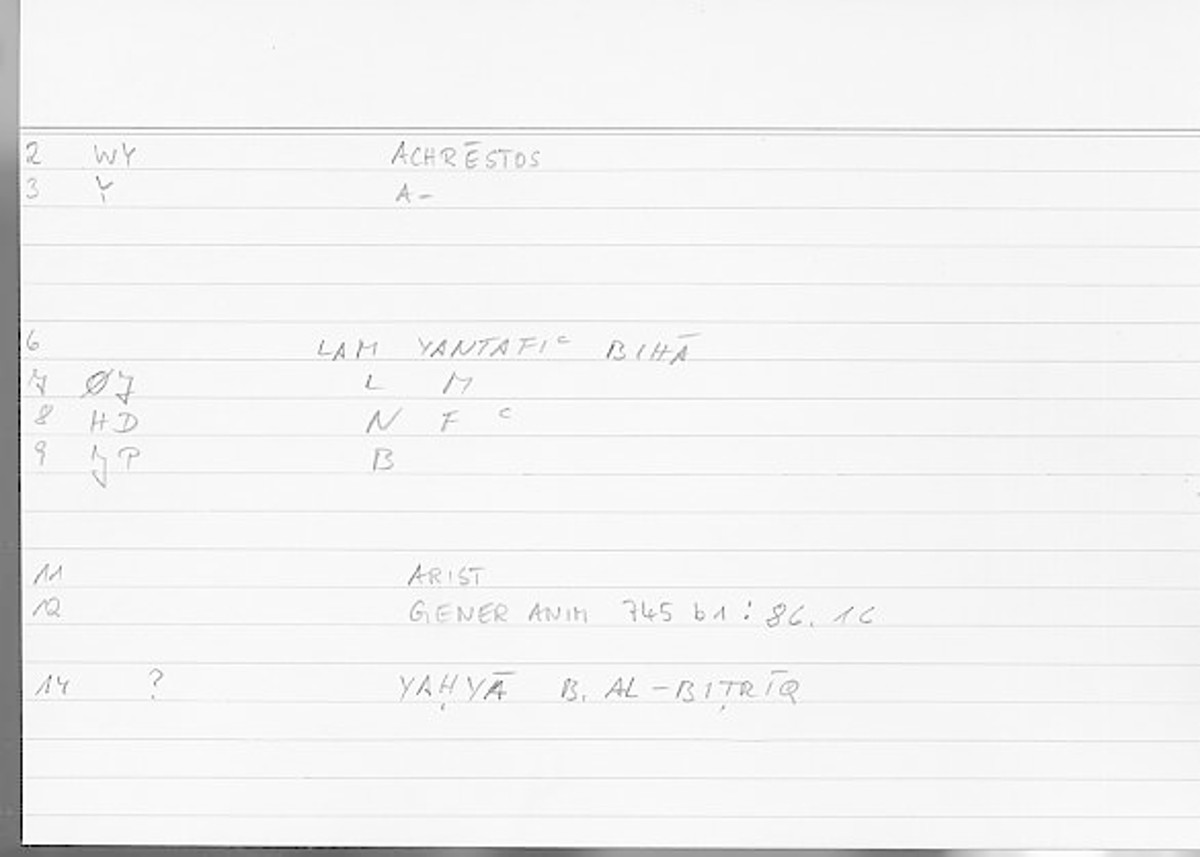 2 WY ACHRĒSTOS
3 Y A-
6 LAM YANTAFIᶜ BIHĀ
7 ØJ L M
8 HD N F ᶜ
9 JP B
11 ARIST
12 GENER ANIM 745 b1 : 86. 16
14 ? YAḤYĀ B. AL-BIṬRĪQ